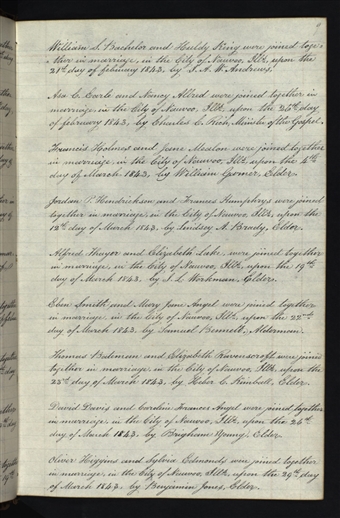 William S. Bachelor and Huldy King were joined toge-
ther in marriage, in the City of Nauvoo, Ills, upon the
21st day of february 1843, by J. A. W. Andrews.
Asa C. Earle and Nancy Allred were joined together in
marriage in the City of Nauvoo, Ills, upon the 26th day
of february 1843, by Charles C. Rich, Minister of the Gospel.
Francis Holmes and Jane were joined together
in marriage in the City of Nauvoo, Ills, upon the 4th
day of March 1843, by William Elder.
Jordan P. Hendrickson and Frances Humphrys were joined
together in marriage, in the City of Nauvoo, Ills, upon the
12th day of March 1843, by Lindsey A. Brady, Elder.
Alfred and Elizabeth Lake, were joined together
in marriage, in the City of Nauvoo, Ills, upon the 19th
day of March 1843, by J. L. Workman, Elder.
Eben Smith and Mary Jane Angel were joined together
in marriage, in the City of Nauvoo, Ills, upon the 22nd
day of March 1843, by Samuel Bennett, Alderman.
Thomas Bateman and Elizabeth Ravenscroft were joined
together in marriage, in the City of Nauvoo, Ills, upon the
23rd day of March 1843, by Heber C. Kimball, Elder.
David Davis and Caroline Frances Angel were joined together
in marriage, in the City of Nauvoo, Ills, upon the 26th
day of March 1843, by Brigham Young, Elder.
Oliver Higgins and Sylvia Edmonds were joined together
in marriage, in the City of Nauvoo, Ills, upon the 29th day
of March 1843, by Benjamin Jones, Elder.